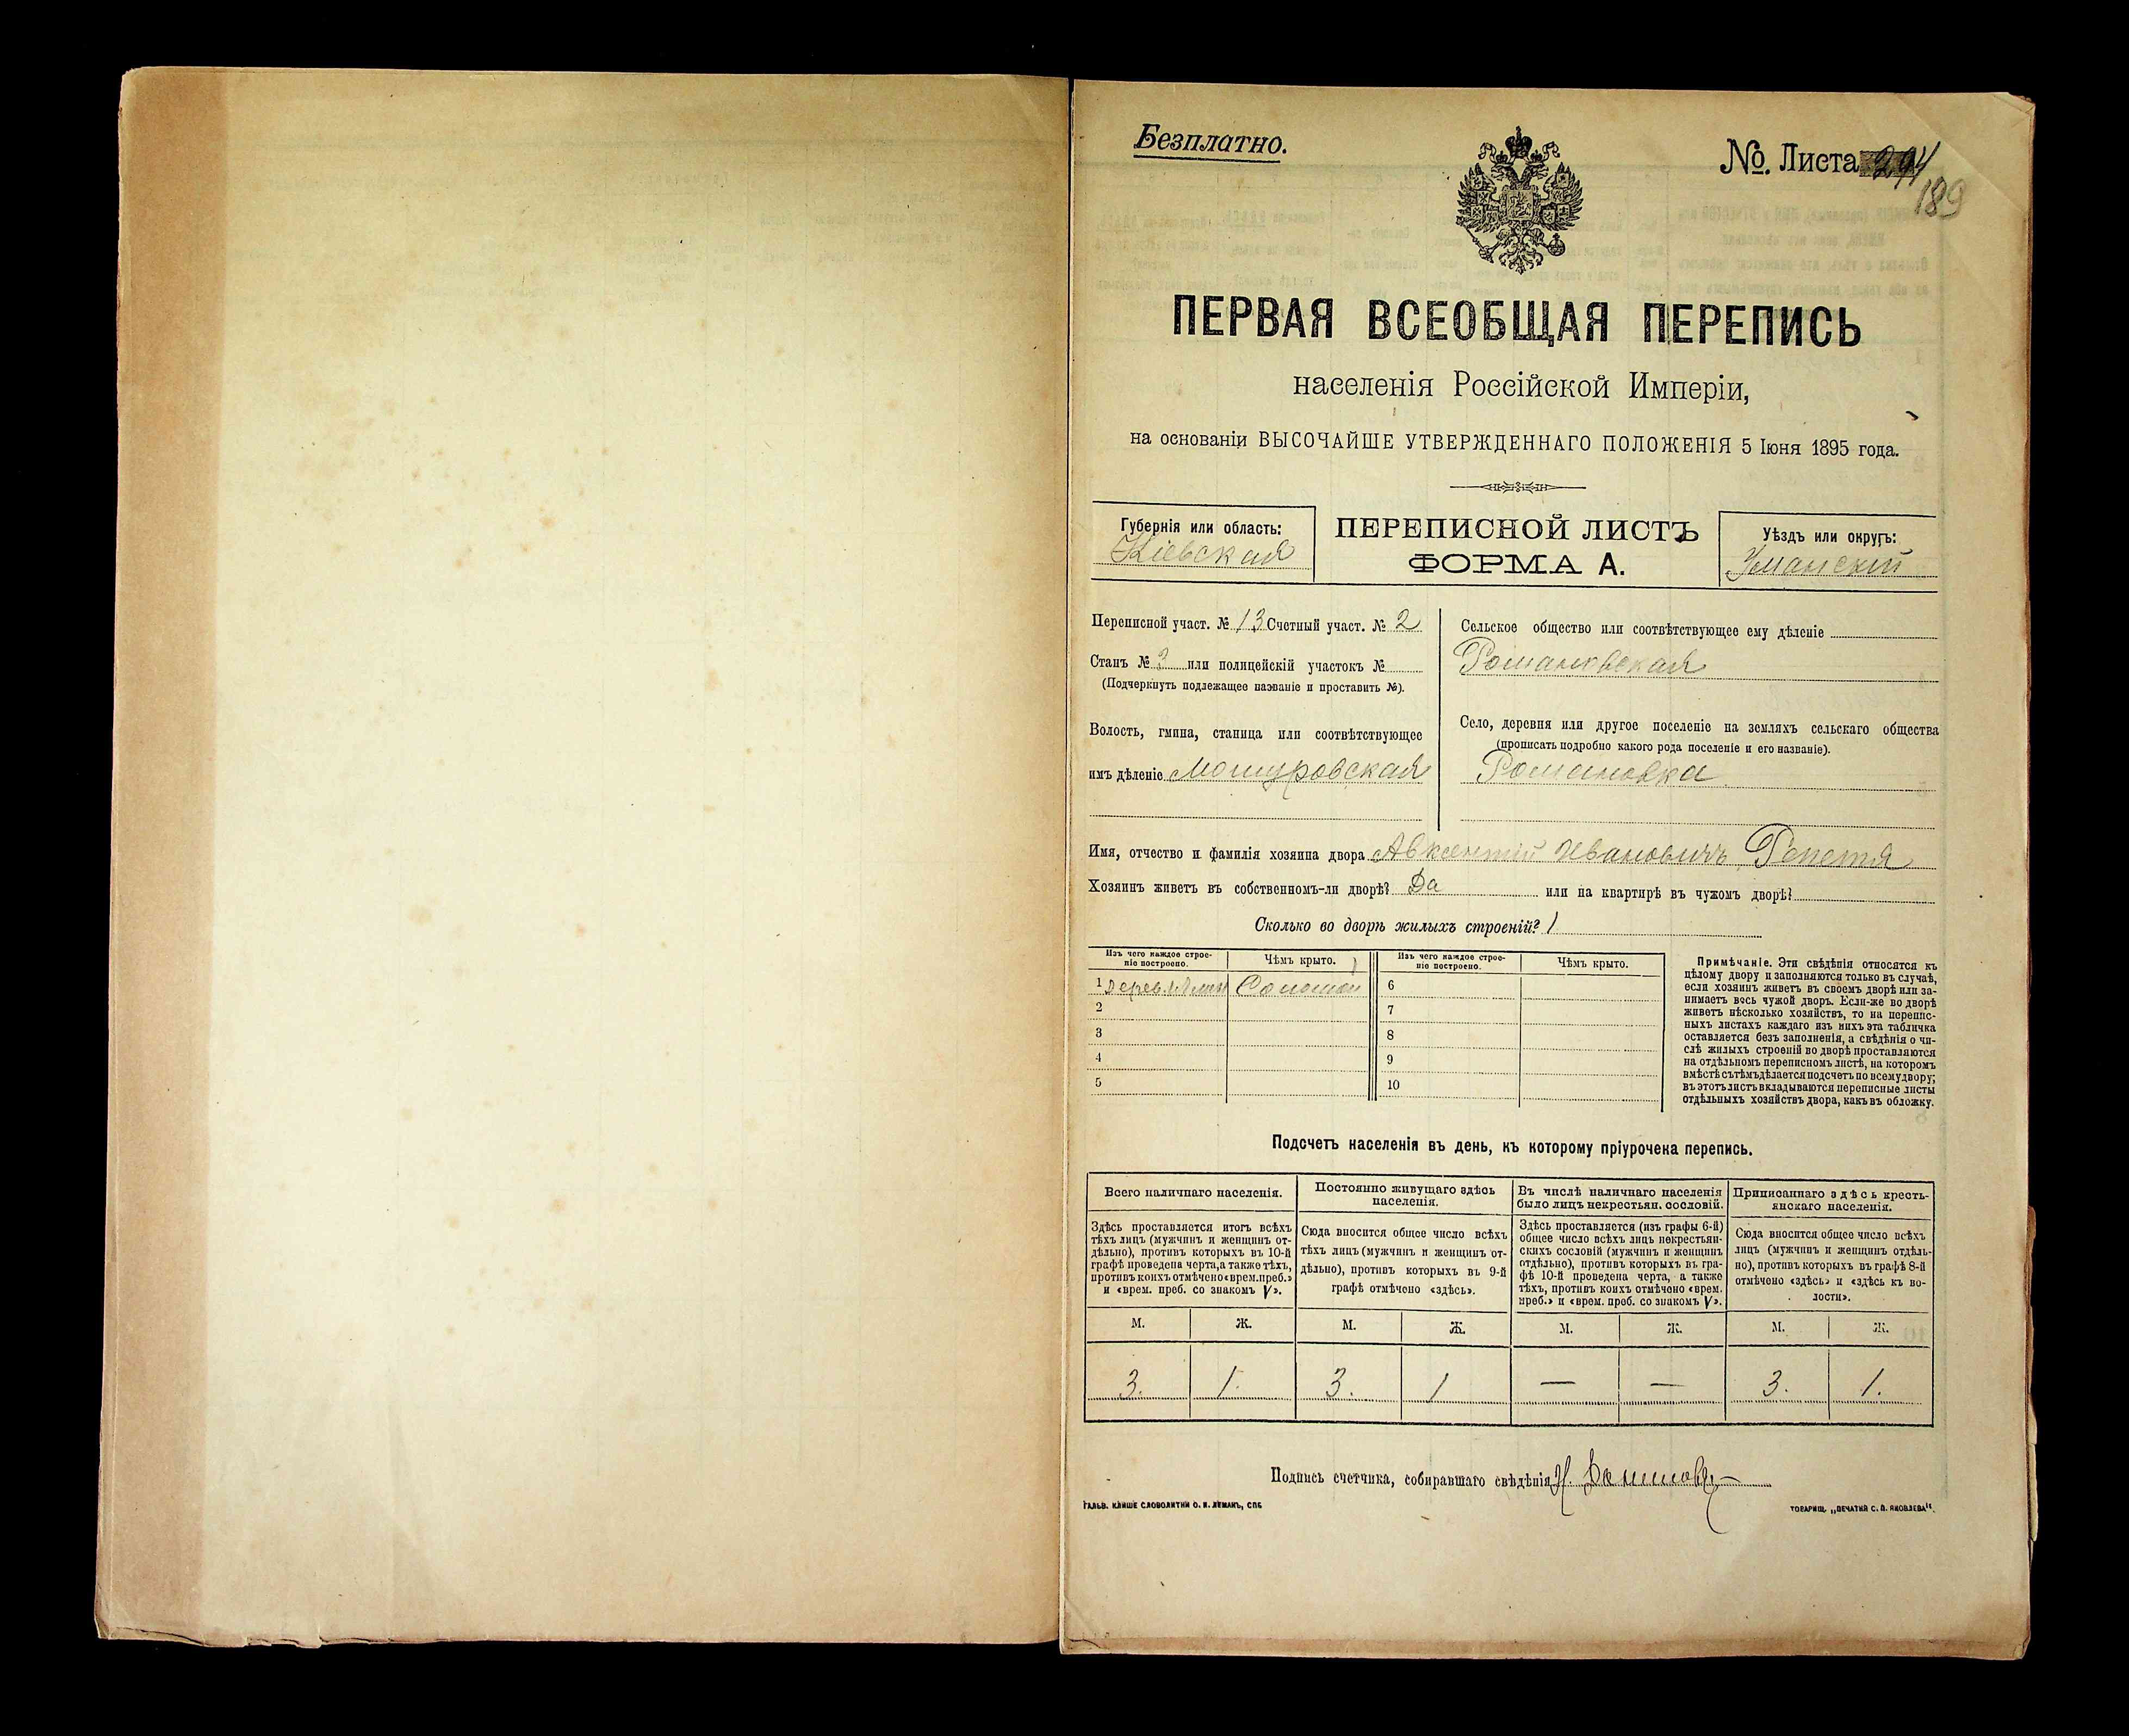 Безплатно.
№. Листа 294
189
ПЕРВАЯ ВСЕОБЩАЯ ПЕРЕПИСЬ
населенія Россійской Имперіи,
на основаніи ВЫСОЧАЙШЕ УТВЕРЖДЕННАГО ПОЛОЖЕНІЯ 5 Іюня 1895 года.
Губернія или область:
Кіевская
ПЕРЕПИСНОЙ ЛИСТЪ
ФОРМА А.
Уѣздъ или округъ:
Уманскій
Переписной участ. № 13 Счетный участ. № 2
Станъ № 3 или полицейскій участокъ №
(Подчеркнуть подлежащее названіе и проставить №).
Волость, гмина, станица или соотвѣтствующее
имъ дѣленіе Мошуровская
Сельское общество или соотвѣтствующее ему дѣленіе
Романовская
Село, деревня или другое поселеніе на земляхъ сельскаго общества
(прописать подробно какого рода поселеніе и его названіе).
Романовка
Имя, отчество и фамилія хозяина двора Авксентій Ивановичъ Репетя
Хозяинъ живетъ въ собственномъ-ли дворѣ? Да или на квартирѣ въ чужомъ дворѣ?
Сколько во дворѣ жилыхъ строеній? 1
Изъ чего каждое строе-
ніе построено.
Чѣмъ крыто.
Изъ чего каждое строе-
ніе построено.
Чѣмъ крыто.
1 дерев. Соломой 6
2 7
3 8
4 9
5 10
Примѣчаніе. Эти свѣдѣнія относятся къ
цѣлому двору и заполняются только въ случаѣ,
если хозяинъ живетъ въ своемъ дворѣ или за-
нимаетъ весь чужой дворъ. Если-же во дворѣ
живетъ нѣсколько хозяйствъ, то на перепис-
ныхъ листахъ каждаго изъ нихъ эта табличка
оставляется безъ заполненія, а свѣдѣнія о чи-
слѣ жилыхъ строеній во дворѣ проставляются
на отдѣльномъ переписномъ листѣ, на которомъ
вмѣстѣ съ тѣмъ дѣлается подсчетъ по всему двору;
въ этотъ листъ вкладываются переписные листы
отдѣльныхъ хозяйствъ двора, какъ въ обложку.
Подсчетъ населенія въ день, къ которому пріурочена перепись.
Всего наличнаго населенія.
Здѣсь проставляется итогъ всѣхъ
тѣхъ лицъ (мужчинъ и женщинъ от-
дѣльно), противъ которыхъ въ 10-й
графѣ проведена черта, а также тѣхъ,
противъ коихъ отмѣчено «врем. преб.»
и «врем. преб. со знакомъ V».
Постоянно живущаго здѣсь
населенія.
Сюда вносится общее число всѣхъ
тѣхъ лицъ (мужчинъ и женщинъ от-
дѣльно), противъ которыхъ въ 9-й
графѣ отмѣчено «здѣсь».
Въ числѣ наличнаго населенія
было лицъ некрестьян. сословій.
Здѣсь проставляется (изъ графы 6-й)
общее число всѣхъ лицъ некрестьян-
скихъ сословій (мужчинъ и женщинъ
отдѣльно), противъ которыхъ въ гра-
фѣ 10-й проведена черта, а также
тѣхъ, противъ коихъ отмѣчено «врем.
преб.» и «врем. преб. со знакомъ V».
Приписаннаго здѣсь кресть-
янскаго населенія.
Сюда вносится общее число всѣхъ
лицъ (мужчинъ и женщинъ отдѣль-
но), противъ которыхъ въ графѣ 8-й
отмѣчено «здѣсь» и «здѣсь къ во-
лости».
М. Ж. М. Ж. М. Ж. М. Ж.
3. 1. 3. 1 — — 3. 1.
Подпись счетчика, собиравшаго свѣдѣнія
ГАЛЬВ. КЛИШЕ СЛОВОЛИТНИ О. И. ЛЕМАНЪ, СПБ
ТОВАРИЩ. „ПЕЧАТНЯ С. П. ЯКОВЛЕВА".